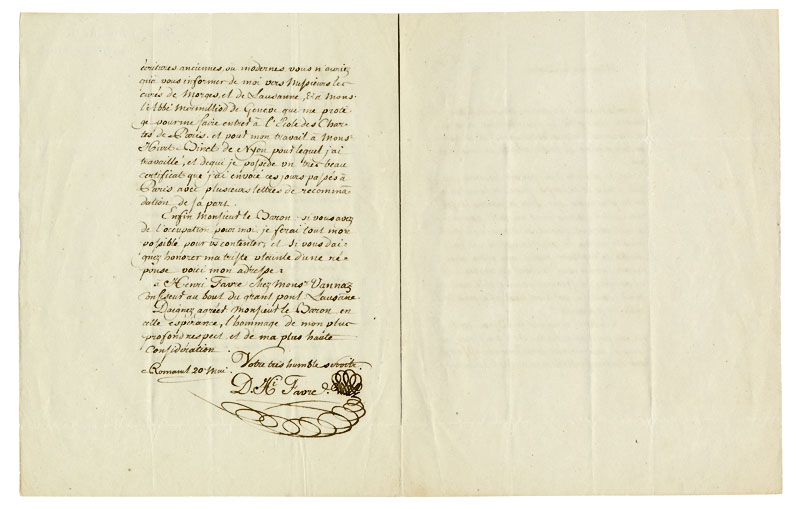 écritures anciennes, ou modernes, vous n'auriez
qu'à vous informer de moi vers Messieurs les
curés de Morges, et de Lausanne, & à Mons.
l'Abbé Mermilliod de Genève que me proté-
ge pour me faire entrer à l'Ecole des Char-
tes de Paris, et pour mon travail à Mons.
Hirt-Binet de Nyon pour lequel j'ai
travaillé, et de qui je possède un très beau
certificat que j'ai envoié ces jours passés à
Paris avec plusieurs lettres de recomman-
dation de sa part.
Enfin Monsieur le Baron, si vous avez
de l'occupation pour moi, je ferai tout mon
possible pour vs contenter, et si vous dai-
gnez honorer ma triste plainte d'une ré-
ponse voici mon adresse:
à Henri Favre chez Monsr Vannaz
confiseur au bout du grant pont Lausanne.
Daignez agréer Monsieur le Baron en
cette espérance, l'hommage de mon plus
profond respect et de ma plus haute
Considération
Votre très humble servitr.
Romanel 20 Mai.
D. Hi Favre